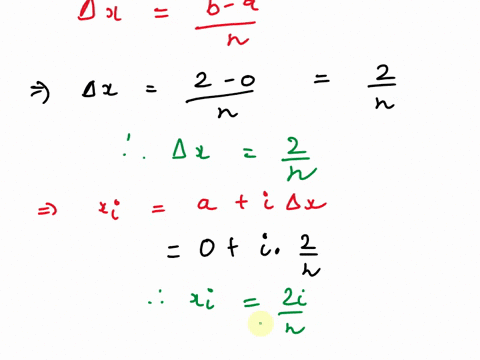 Δx = b-a/n
⇒ Δx = 2-0/n = 2/n
∴ Δx = 2/n
⇒ xi = a + i Δx
= 0 + i. 2/n
∴ xi = 2i/n